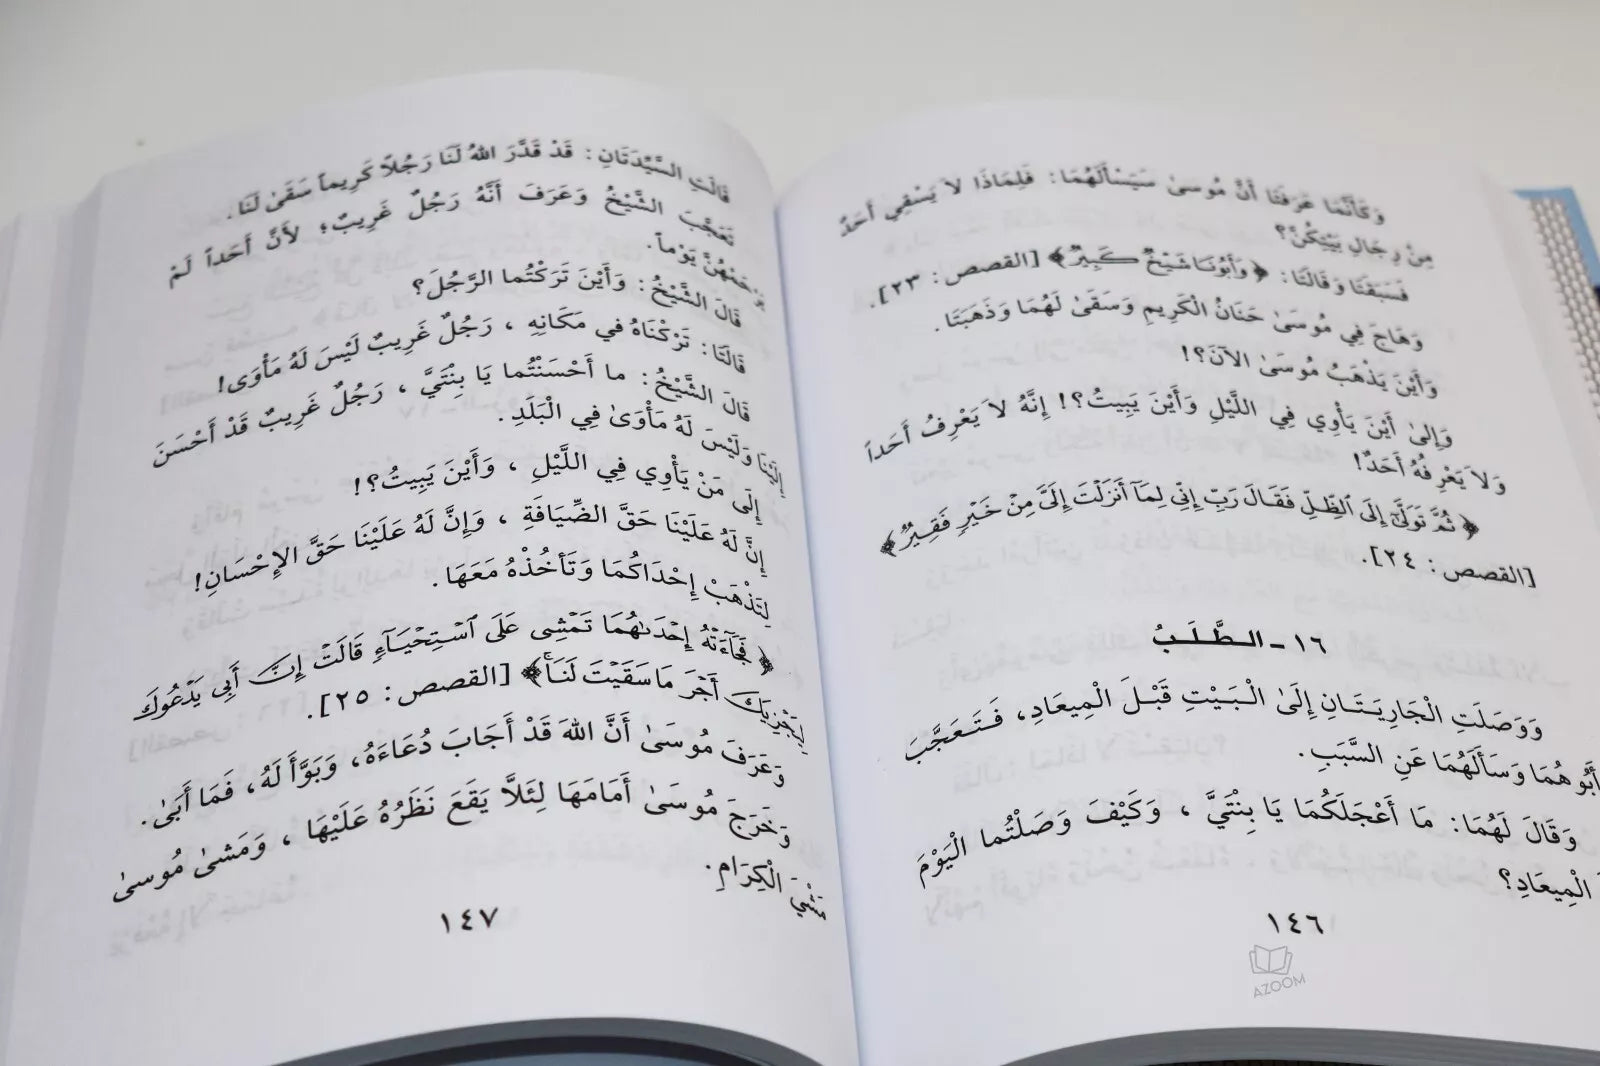 وَكَأَنَّمَا عَرَفَتَا أَنَّ مُوسَىٰ سَيَسْأَلُهُمَا: فَلِمَاذَا لاَ يَسْقِي أَحَدٌ
مِنْ رِجَالِ بَيْتِكُنَّ؟
فَسَبَقَتَا وَقَالَتَا: ﴿وَأَبُونَا شَيْخٌ كَبِيرٌ﴾ [القصص: ٢٣].
وَهَاجَ فِي مُوسَىٰ حَنَانُ الْكَرِيمِ وَسَقَىٰ لَهُمَا وَذَهَبَتَا.
وَأَيْنَ يَذْهَبُ مُوسَىٰ الآنَ؟!
وَإِلىٰ أَيْنَ يَأْوِي فِي اللَّيْلِ وَأَيْنَ يَبِيتُ؟! إِنَّهُ لاَ يَعْرِفُ أَحَداً
وَلاَ يَعْرِفُهُ أَحَدٌ!
﴿ثُمَّ تَوَلَّىٰٓ إِلَى ٱلظِّلِّ فَقَالَ رَبِّ إِنِّي لِمَآ أَنزَلْتَ إِلَيَّ مِنْ خَيْرٍ فَقِيرٌ﴾
[القصص: ٢٤].
١٦ - الطَّلَبُ
وَوَصَلَتِ الْجَارِيَتَانِ إِلَىٰ الْبَيْتِ قَبْلَ الْمِيعَادِ، فَتَعَجَّبَ
أَبُوهُمَا وَسَأَلَهُمَا عَنِ السَّبَبِ.
وَقَالَ لَهُمَا: مَا أَعْجَلَكُمَا يَا بِنْتَيَّ، وَكَيْفَ وَصَلْتُمَا الْيَوْمَ
الْمِيعَادِ؟
١٤٦
AZOOM
قَالَتِ السَّيِّدَتَانِ: قَدْ قَدَّرَ اللهُ لَنَا رَجُلاً كَرِيماً سَقَىٰ لَنَا.
تَعَجَّبَ الشَّيْخُ وَعَرَفَ أَنَّهُ رَجُلٌ غَرِيبٌ؛ لأَنَّ أَحَداً لَمْ
يَرْحَمْهُنَّ يَوْماً.
قَالَ الشَّيْخُ: وَأَيْنَ تَرَكْتُما الرَّجُلَ؟
قَالَتَا: تَرَكْنَاهُ في مَكَانِهِ، رَجُلٌ غَرِيبٌ لَيْسَ لَهُ مَأْوَى!
قَالَ الشَّيْخُ: ما أَحْسَنْتُما يَا بِنْتَيَّ، رَجُلٌ غَرِيبٌ قَدْ أَحْسَنَ
إِلَيْنَا وَلَيْسَ لَهُ مَأْوَىٰ فِي الْبَلَدِ.
إِلَى مَنْ يَأْوِي فِي اللَّيْلِ، وَأَيْنَ يَبِيتُ؟!
إِنَّ لَهُ عَلَيْنَا حَقَّ الضِّيَافَةِ، وَإِنَّ لَهُ عَلَيْنَا حَقَّ الإِحْسَانِ!
لِتَذْهَبْ إِحْدَاكُمَا وَتَأْخُذْهُ مَعَهَا.
﴿فَجَآءَتْهُ إِحْدَىٰهُمَا تَمْشِي عَلَى ٱسْتِحْيَآءٍ قَالَتْ إِنَّ أَبِي يَدْعُوكَ
لِيَجْزِيَكَ أَجْرَ مَا سَقَيْتَ لَنَا﴾ [القصص: ٢٥].
وَعَرَفَ مُوسَىٰ أَنَّ اللهَ قَدْ أَجَابَ دُعَاءَهُ، وَبَوَّأَ لَهُ، فَمَا أَبَىٰ.
وَخَرَجَ مُوسَىٰ أَمَامَهَا لِئَلاَّ يَقَعَ نَظَرُهُ عَلَيْهَا، وَمَشىٰ مُوسىٰ
مَشْيَ الْكِرَامِ.
١٤٧